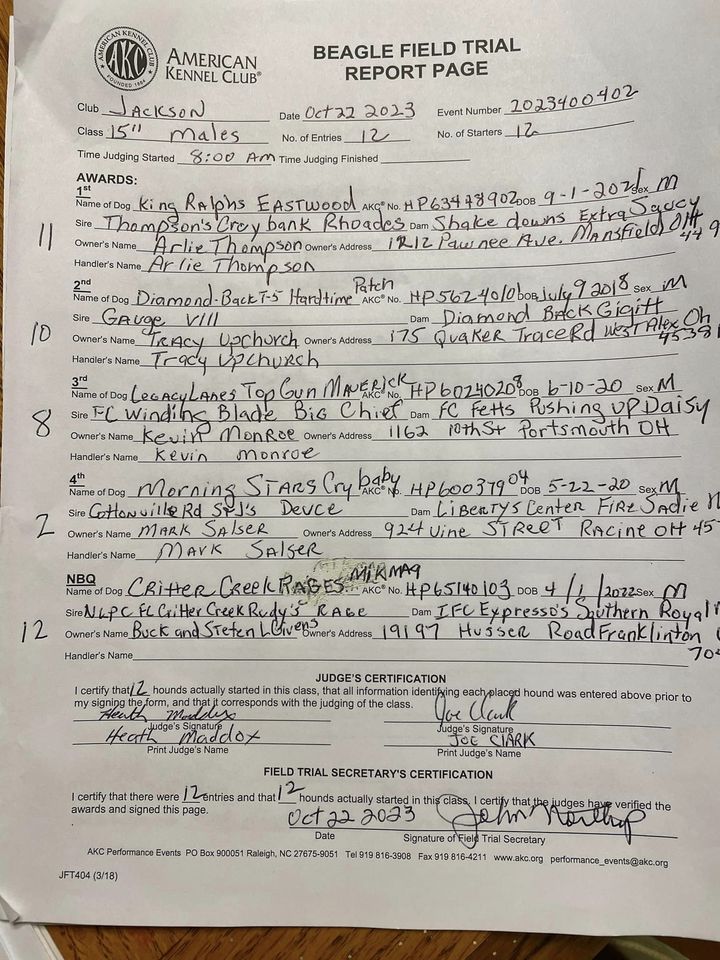 AMERICAN KENNEL CLUB
AKC
FOUNDED 1884
AMERICAN
KENNEL CLUB®
BEAGLE FIELD TRIAL
REPORT PAGE
Club JACKSON Date Oct 22 2023 Event Number 2023400402
Class 15" males No. of Entries 12 No. of Starters 12
Time Judging Started 8:00 AM Time Judging Finished
AWARDS:
1st
Name of Dog King Ralphs EASTWOOD AKC® No. HP63448902 DOB 9-1-2021 Sex M
Sire Thompson's Croy bank Rhoades Dam Shake downs Extra Saucy
11 Owner's Name Arlie Thompson Owner's Address 1212 Pawnee Ave. Mansfield OH
449
Handler's Name Arlie Thompson
2nd
Name of Dog Diamond-Back T-5 Hardtime Patch AKC® No. HP56240101 DOB July 9 2018 Sex M
Sire GAUGE VIII Dam Diamond BACK Gigitt
10 Owner's Name TRACY UPchurch Owner's Address 175 QUAKER TRACE Rd WEST Alex Oh
4538
Handler's Name Tracy Upchurch
3rd
Name of Dog LEGACY LANES TOP GUN MAVERICK HP60240208 DOB 6-10-20 Sex M
Sire FC Winding Blade Big Chief Dam FC Fetts Pushing UP Daisy
8 Owner's Name Kevin MONROE Owner's Address 1162 10th St Portsmouth OH
Handler's Name Kevin monroe
4th
Name of Dog Morning STARS Cry baby AKC® No. HP60037904 DOB 5-22-20 Sex M
Sire Cottonville Rd St J's Deuce Dam LiBERTYS CENTER FIRE SADIE
2 Owner's Name MARK SALSER Owner's Address 924 Vine STREET RACINE OH 45
Handler's Name MARK SALSER
NBQ
Name of Dog CRITTER CREEK RAGES MIKMAQ AKC® No. HP65140103 DOB 4/1/2022 Sex M
Sire NGPC FC Critter Creek Rudy's RAGE Dam IFC Expresso's Southern Royal
12 Owner's Name Buck and Steten L Givens Owner's Address 19197 Husser Road Franklinton
70
Handler's Name
JUDGE'S CERTIFICATION
I certify that 12 hounds actually started in this class, that all information identifying each placed hound was entered above prior to
my signing the form, and that it corresponds with the judging of the class.
Heath Maddox Joe Clark
Judge's Signature Judge's Signature
Heath Maddox JOE CLARK
Print Judge's Name Print Judge's Name
FIELD TRIAL SECRETARY'S CERTIFICATION
I certify that there were 12 entries and that 12 hounds actually started in this class, I certify that the judges have verified the
awards and signed this page.
Oct 22 2023 John Northup
Date Signature of Field Trial Secretary
AKC Performance Events PO Box 900051 Raleigh, NC 27675-9051 Tel 919 816-3908 Fax 919 816-4211 www.akc.org performance_events@akc.org
JFT404 (3/18)